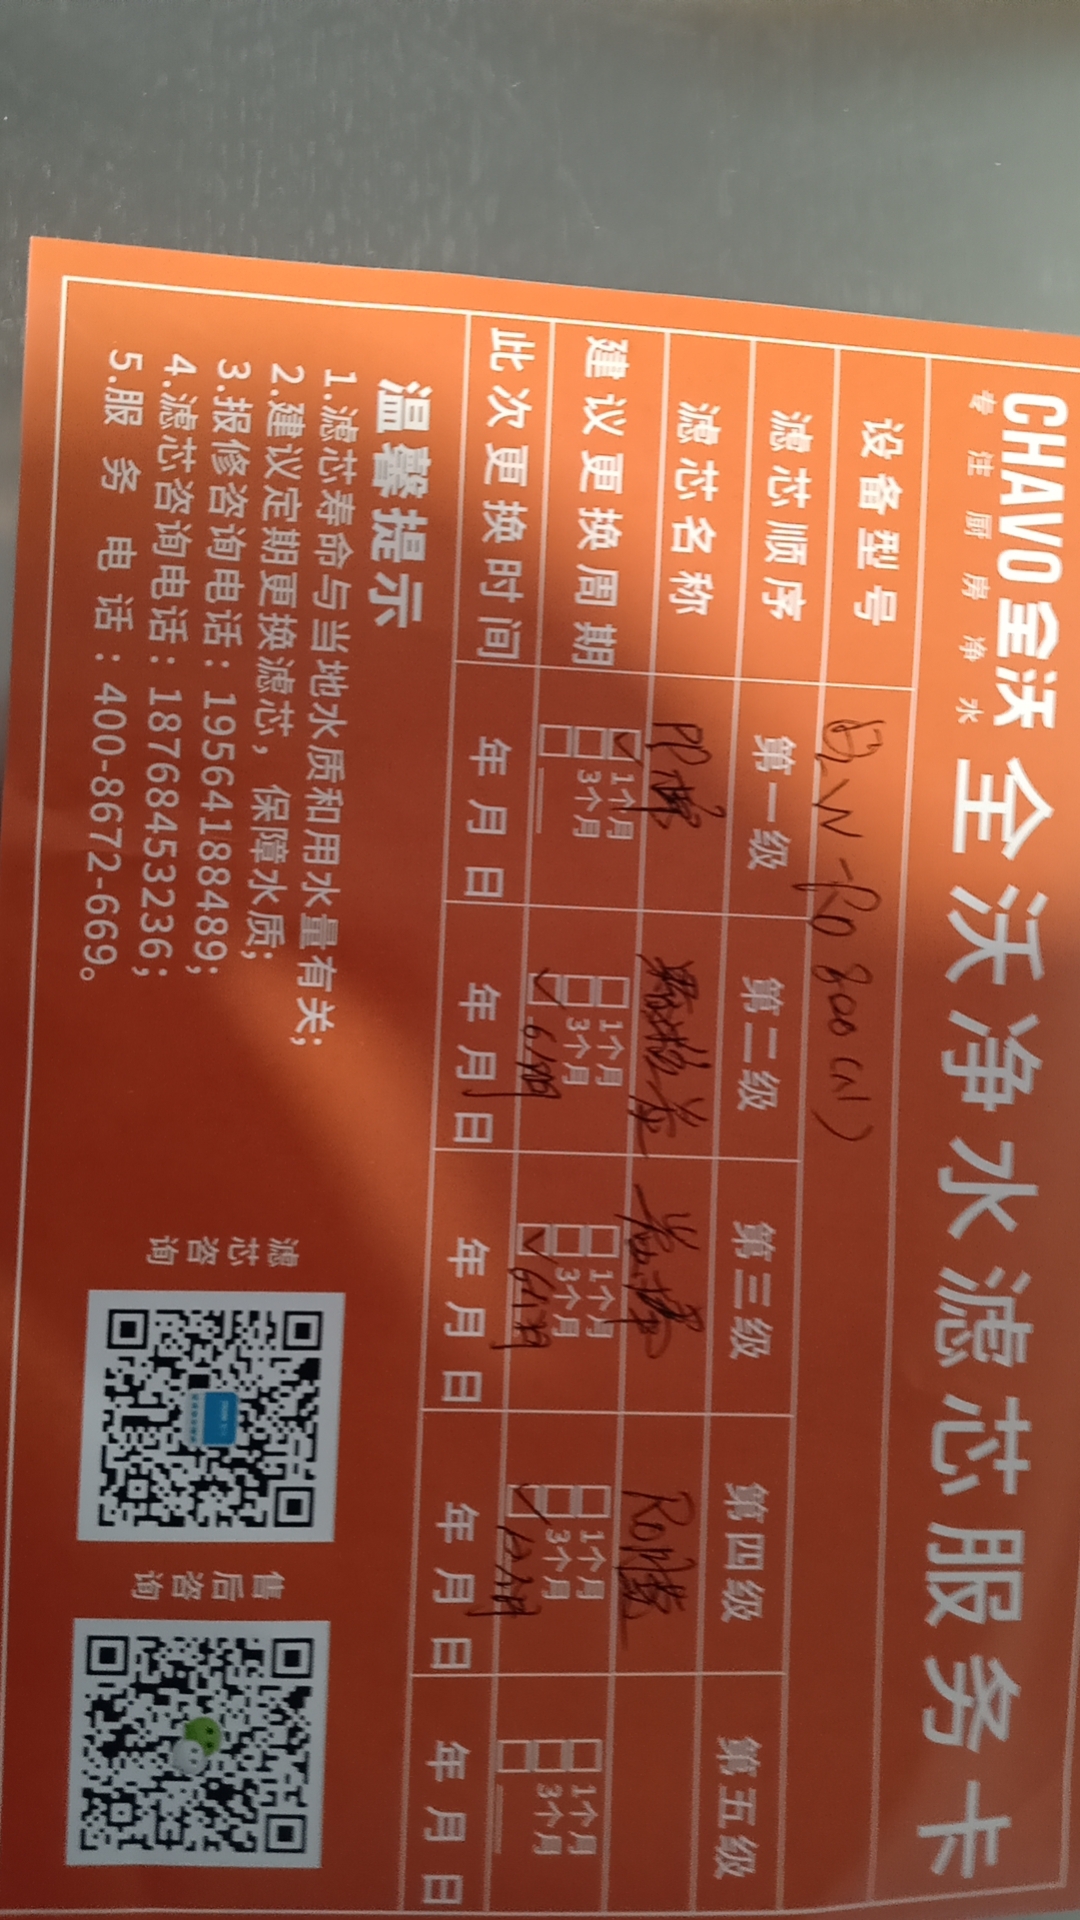 CHAVO 全沃
专注厨房净水
全沃净水滤芯服务卡
设备型号 -RO 800G(N)
滤芯顺序 第一级 第二级 第三级 第四级 第五级
滤芯名称 PP棉 RO膜
建议更换周期 1个月 1个月 1个月 1个月 1个月
3个月 3个月 3个月 3个月 3个月
6个月 6个月 12个月
此次更换时间 年 月 日 年 月 日 年 月 日 年 月 日 年 月 日
温馨提示
1.滤芯寿命与当地水质和用水量有关;
2.建议定期更换滤芯,保障水质;
3.报修咨询电话:19564188489;
4.滤芯咨询电话:18768453236;
5.服务电话:400-8672-669。
滤芯咨询
售后咨询